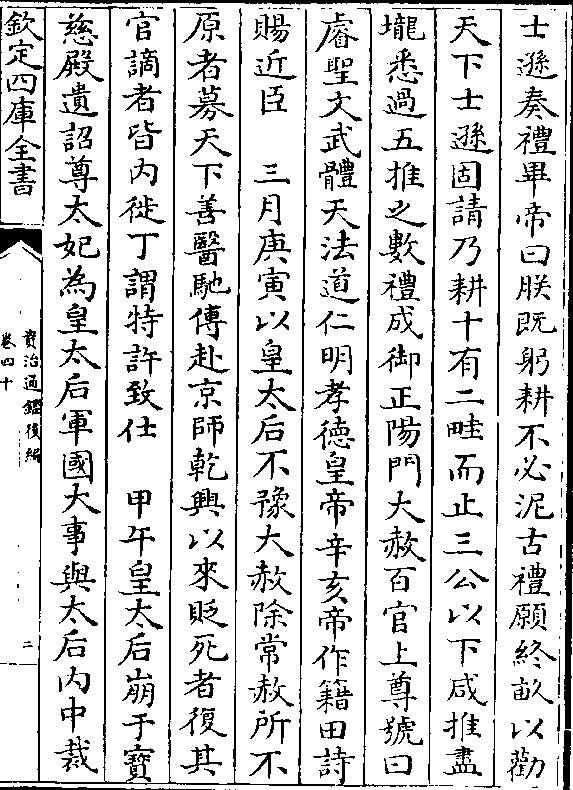 士遜奏禮畢帝曰朕既躬耕不必泥古禮願終畝以勸
天下士遜固請乃耕十有二畦而止三公以下咸推盡
壠悉過五推之數禮成御正陽門大赦百官上尊號曰
睿聖文武體天法道仁明孝德皇帝辛亥帝作籍田詩
賜近臣　三月庚寅以皇太后不豫大赦除常赦所不
原者募天下善醫馳傳赴京師乾興以來貶死者復其
官謫者皆內徙丁謂特許致仕　甲午皇太后崩于寶
慈殿遺詔尊太妃為皇太后軍國大事與太后內中裁
欽定四庫全書
資治通鑑後編
卷四十
二